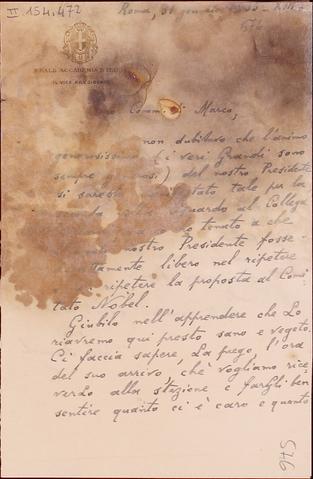 II 154.472
Roma, 31
REALE ACCADEMIA D'ITALIA
IL VICE PRESIDENTE
Comm. di Marco,
non dubitavo che l'animo
generosissimo (i veri Grandi sono
sempre) del nostro Presidente
si sarebbe tale per la
riguardo al Collega
tenuto a che
nostro Presidente fosse
libero nel ripetere
ripetere la proposta al Comi
tato Nobel.
Giubilo nell'apprendere che Lo
riavremo qui presto sano e vegeto.
Ci faccia sapere, La prego, l'ora
del suo arrivo, chè vogliamo rice
verlo alla stazione e fargli ben
sentire quanto ci è caro e quanto